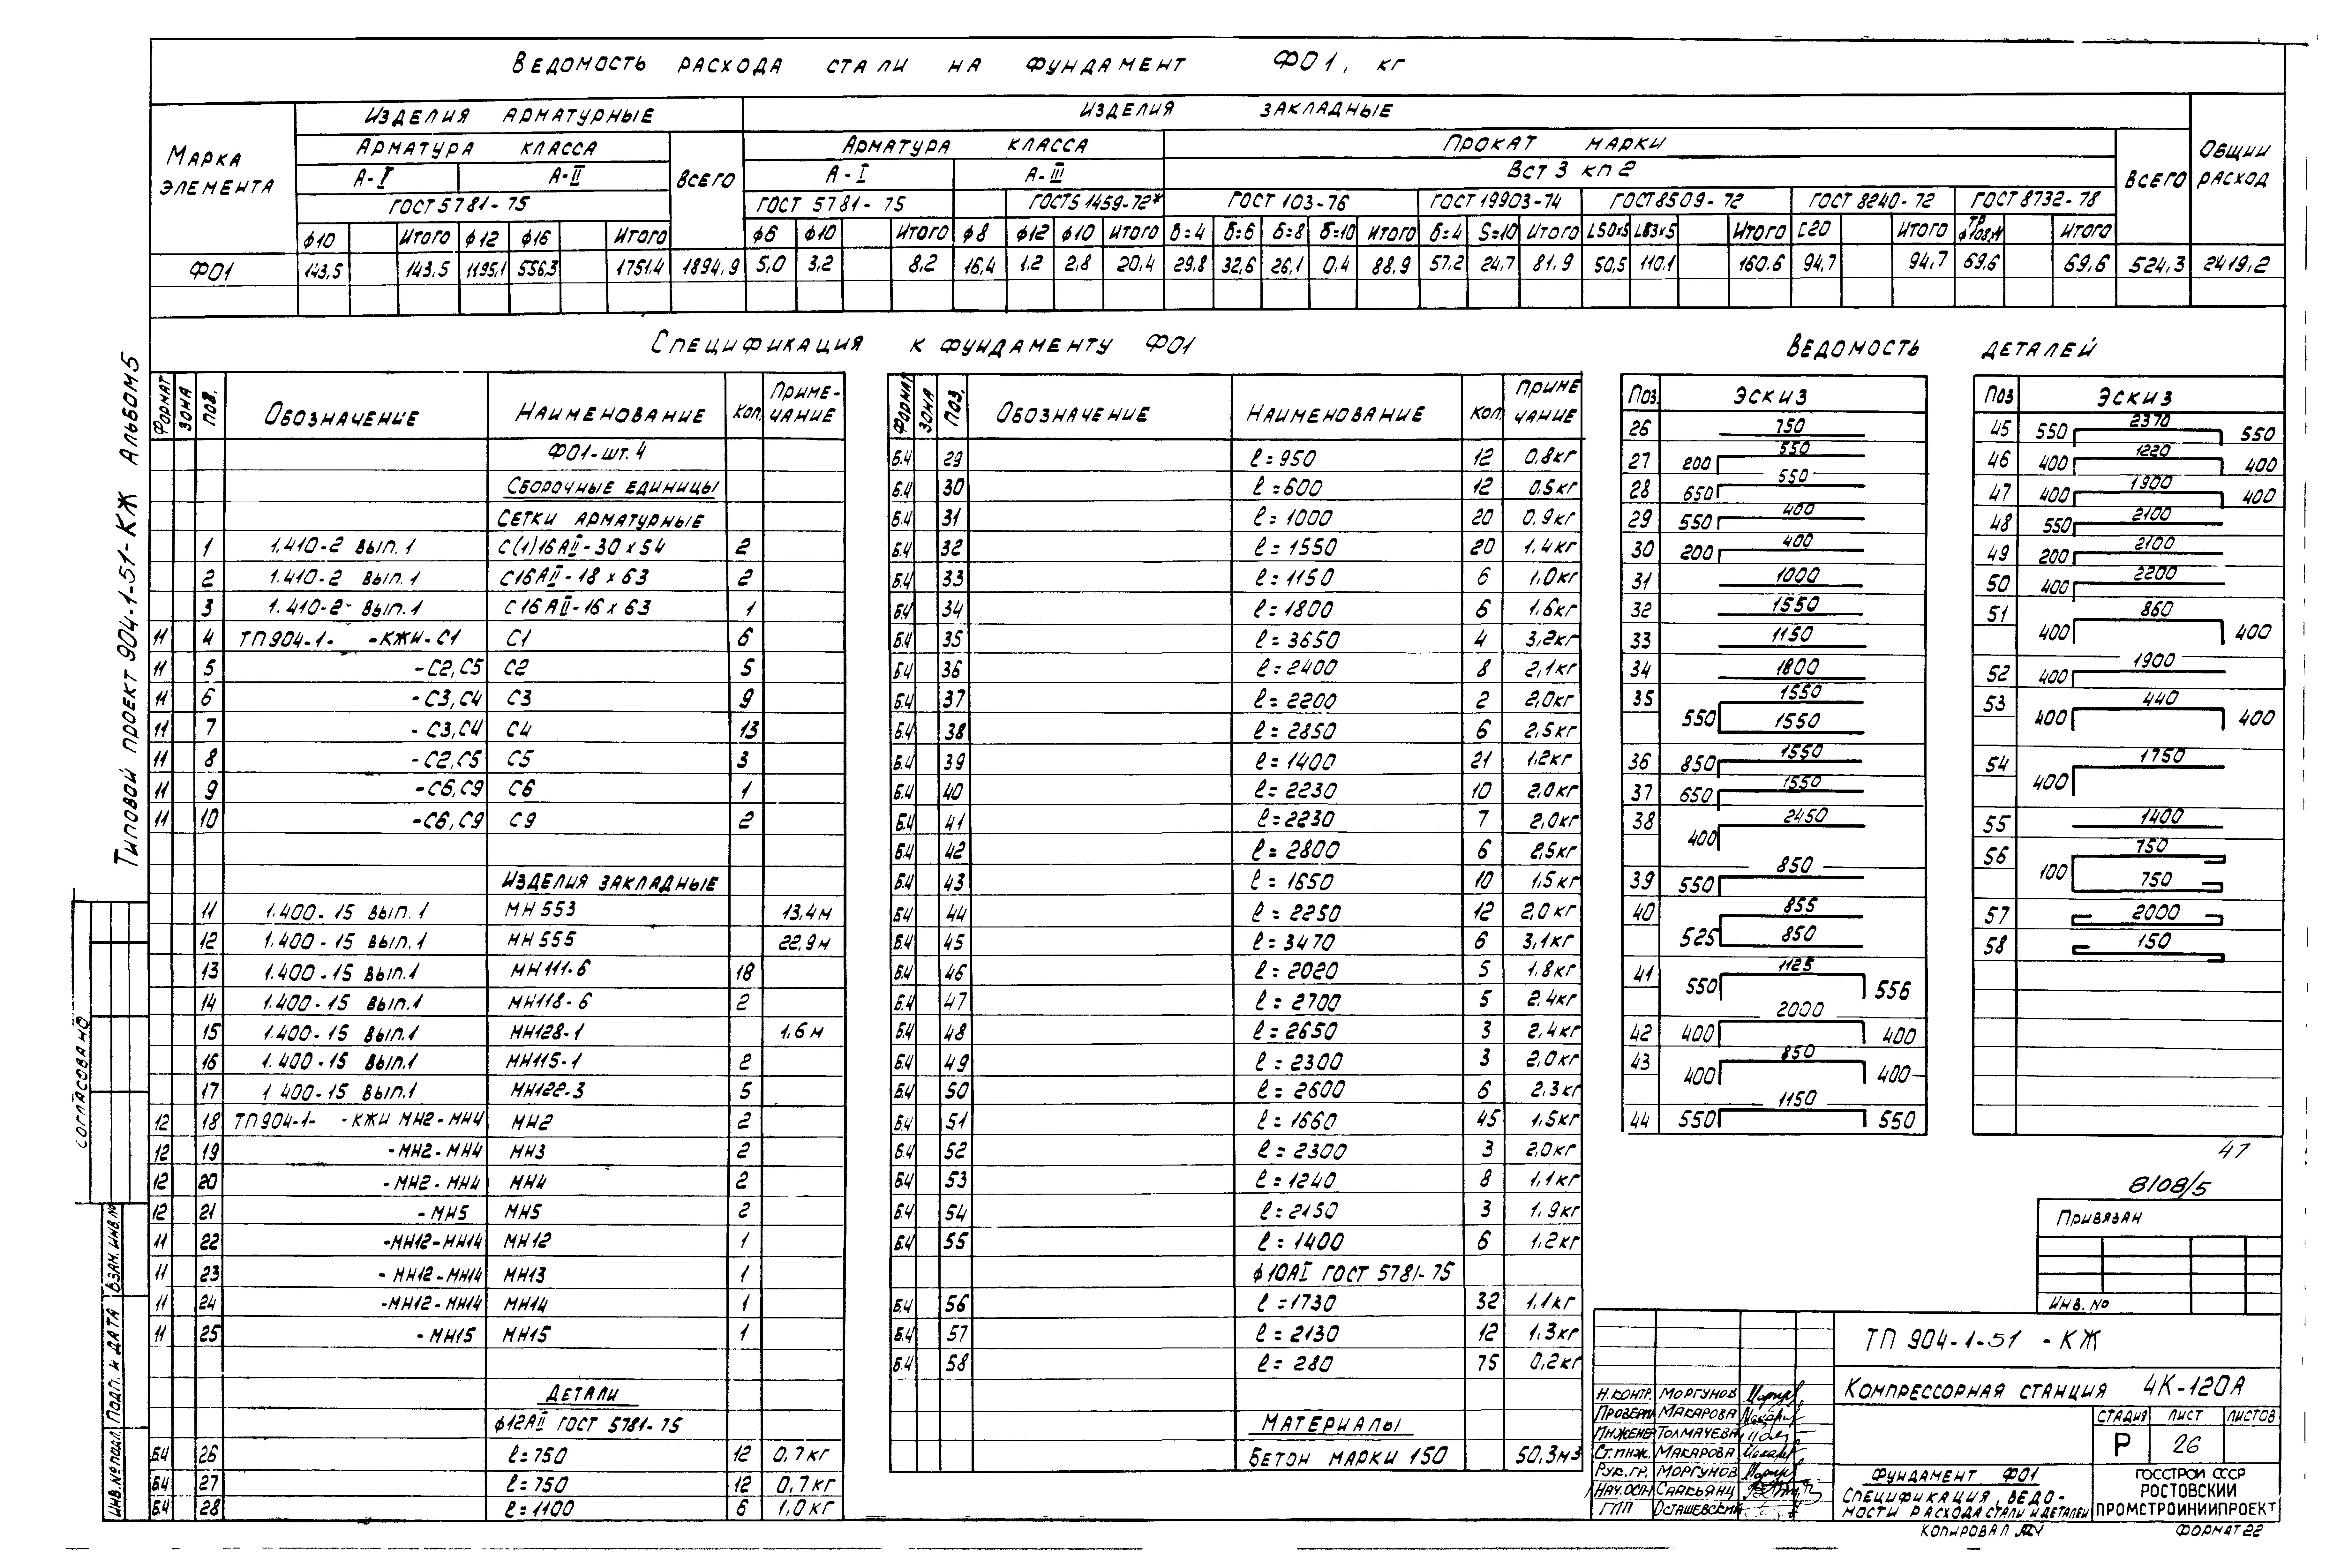 Ведомость расхода стали на фундамент Ф01, кг
Марка элемента
Изделия арматурные
Изделия закладные
Общий расход
Арматура класса
Всего
Арматура класса
Прокат марки
Всего
А-I А-II
А-I А-III
Вст 3 кп 2
ГОСТ 5781-75
ГОСТ 5781-75 ГОСТ5 1459-72* ГОСТ 103-76 ГОСТ 19903-74 ГОСТ 8509-72 ГОСТ 8240-72 ГОСТ 8732-78
ф10 Итого ф12 ф16 Итого ф6 ф10 Итого ф8 ф12 ф10 Итого δ=4 δ=6 δ=8 δ=10 Итого δ=4 S=10 Итого L50x5 L83x5 Итого [20 Итого ТР Итого
Ф01 143,5 143,5 1195,1 556,3 1751,4 1894,9 5,0 3,2 8,2 16,4 1,2 2,8 20,4 29,8 32,6 26,1 0,4 88,9 57,2 24,7 81,9 50,5 110,1 160,6 94,7 94,7 69,6 69,6 524,3 2419,2
Типовой проект 904-1-51-КЖ Альбом 5
Спецификация к фундаменту Ф01
Формат Зона Поз. Обозначение Наименование Кол. Примечание
Ф01-шт. 4
Сборочные единицы
Сетки арматурные
1 1.410-2 вып. 1 С(1)16АII-30x54 2
2 1.410-2 вып. 1 С16АII-18x63 2
3 1.410-2 вып. 1 С16АII-16x63 1
11 4 ТП904-1- -КЖИ-С1 С1 6
11 5 -С2,С5 С2 5
11 6 -С3,С4 С3 9
11 7 -С3,С4 С4 13
11 8 -С2,С5 С5 3
11 9 -С6,С9 С6 1
11 10 -С6,С9 С9 2
Изделия закладные
11 1.400-15 вып. 1 МН553 13,4м
12 1.400-15 вып. 1 МН555 22,9м
13 1.400-15 вып. 1 МН111-6 18
14 1.400-15 вып. 1 МН118-6 2
15 1.400-15 вып. 1 МН128-1 1,6м
16 1.400-15 вып. 1 МН115-1 2
17 1.400-15 вып. 1 МН122-3 5
12 18 ТП904-1- -КЖИ МН2-МН4 МН2 2
12 19 -МН2-МН4 МН3 2
12 20 -МН2-МН4 МН4 2
12 21 -МН5 МН5 2
11 22 -МН12-МН14 МН12 1
11 23 -МН12-МН14 МН13 1
11 24 -МН12-МН14 МН14 1
11 25 -МН15 МН15 1
Детали
ф12АII ГОСТ 5781-75
Б4 26 ℓ=750 12 0,7кг
Б4 27 ℓ=750 12 0,7кг
Б4 28 ℓ=1100 6 1,0кг
Формат Зона Поз. Обозначение Наименование Кол. Примечание
Б4 29 ℓ=950 12 0,8кг
Б4 30 ℓ=600 12 0,5кг
Б4 31 ℓ=1000 20 0,9кг
Б4 32 ℓ=1550 20 1,4кг
Б4 33 ℓ=1150 6 1,0кг
Б4 34 ℓ=1800 6 1,6кг
Б4 35 ℓ=3650 4 3,2кг
Б4 36 ℓ=2400 8 2,1кг
Б4 37 ℓ=2200 2 2,0кг
Б4 38 ℓ=2850 6 2,5кг
Б4 39 ℓ=1400 21 1,2кг
Б4 40 ℓ=2230 10 2,0кг
Б4 41 ℓ=2230 7 2,0кг
Б4 42 ℓ=2800 6 2,5кг
Б4 43 ℓ=1650 10 1,5кг
Б4 44 ℓ=2250 12 2,0кг
Б4 45 ℓ=3470 6 3,1кг
Б4 46 ℓ=2020 5 1,8кг
Б4 47 ℓ=2700 5 2,4кг
Б4 48 ℓ=2650 3 2,4кг
Б4 49 ℓ=2300 3 2,0кг
Б4 50 ℓ=2600 6 2,3кг
Б4 51 ℓ=1660 45 1,5кг
Б4 52 ℓ=2300 3 2,0кг
Б4 53 ℓ=1240 8 1,1кг
Б4 54 ℓ=2150 3 1,9кг
Б4 55 ℓ=1400 6 1,2кг
ф10АI ГОСТ 5781-75
Б4 56 ℓ=1730 32 1,1кг
Б4 57 ℓ=2130 12 1,3кг
Б4 58 ℓ=280 75 0,2кг
Материалы
Бетон марки 150 50,3м3
Ведомость деталей
Поз. Эскиз
26 750
27 200 550
28 650 550
29 550 400
30 200 400
31 1000
32 1550
33 1150
34 1800
35 1550
550 1550
36 850 1550
37 650 1550
38 2450
400
39 550 850
40 855
525 850
41 1125
550 556
2000
42 400 400
43 850
400 400
1150
44 550 550
Поз Эскиз
45 550 2370 550
46 400 1220 400
47 400 1900 400
48 550 2100
49 200 2100
50 400 2200
51 860
400 400
52 400 1900
53 440
400 400
54 1750
400
55 1400
56 750
100 750
57 2000
58 150
47
8108/5
Привязан
Инв. №
Согласовано
Взам. инв. №
Подп. и дата
Инв. № подл.
ТП 904-1-51 -КЖ
Компрессорная станция 4К-120А
Н.контр. Моргунов
Проверил Макарова
Инженер Толмачева
Ст.инж. Макарова
Рук.гр. Моргунов
Нач.осп-1 Саакьянц
ГИП Осташевский
Стадия Лист Листов
Р 26
Фундамент Ф01
Спецификация, ведомости расхода стали и деталей
Госстрой СССР
Ростовский
Промстройниипроект
Копировал
Формат 22